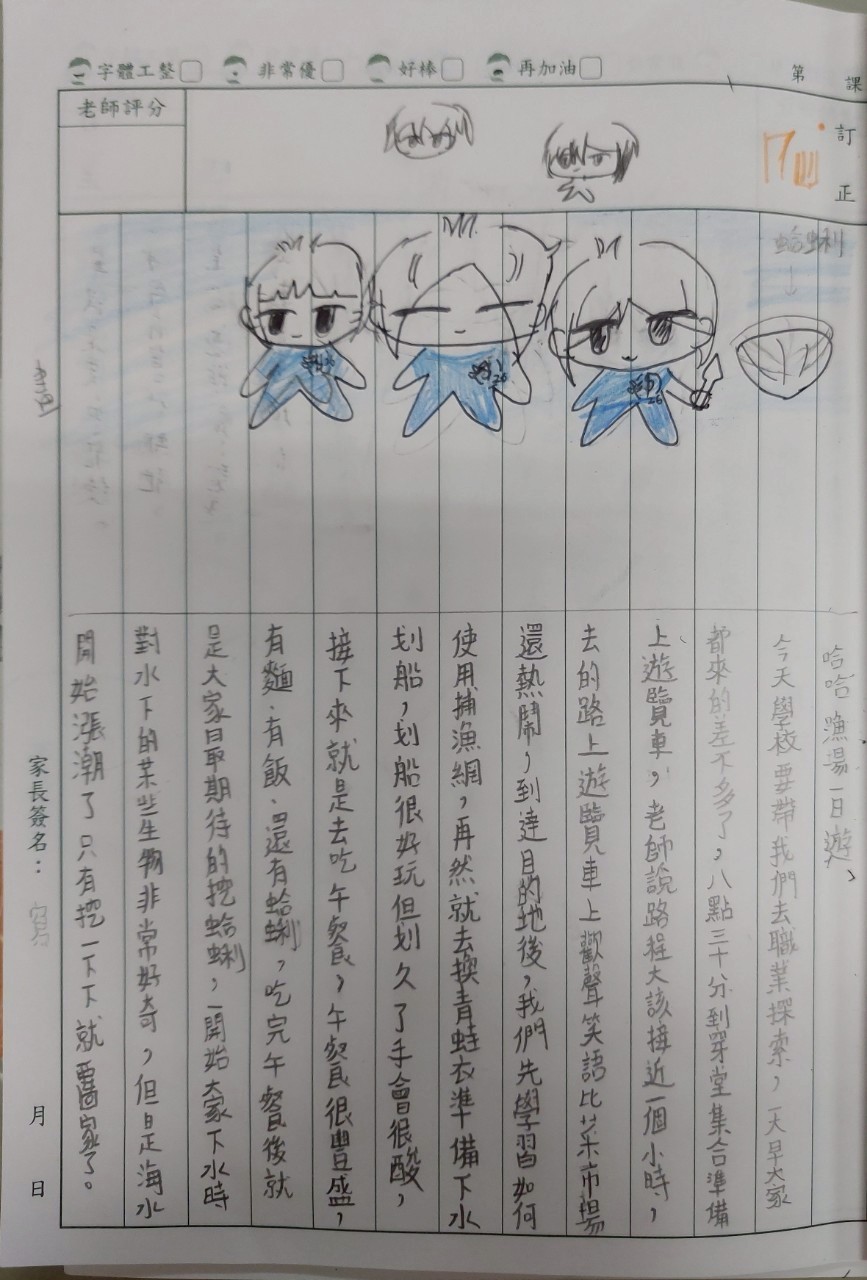 字體工整 非常優 好棒 再加油
第 課
老師評分
訂正
蛤蜊
哈哈漁場一日遊
今天學校要帶我們去職業探索,一大早大家
都來的差不多了,八點三十分到穿堂集合準備
上遊覽車,老師說路程大該接近一個小時,
去的路上遊覽車上歡聲笑語比菜市場
還熱鬧,到達目的地後,我們先學習如何
使用捕漁網,再然就去換青蛙衣準備下水
划船,划船很好玩但划久了手會很酸,
接下來就是去吃午餐,午餐很豐盛,
有麵、有飯、還有蛤蜊,吃完午餐後就
是大家最期待的挖蛤蜊,一開始大家下水時
對水下的某些生物非常好奇,但是海水
開始漲潮了只有挖一下下就要回家了。
家長簽名:
月 日